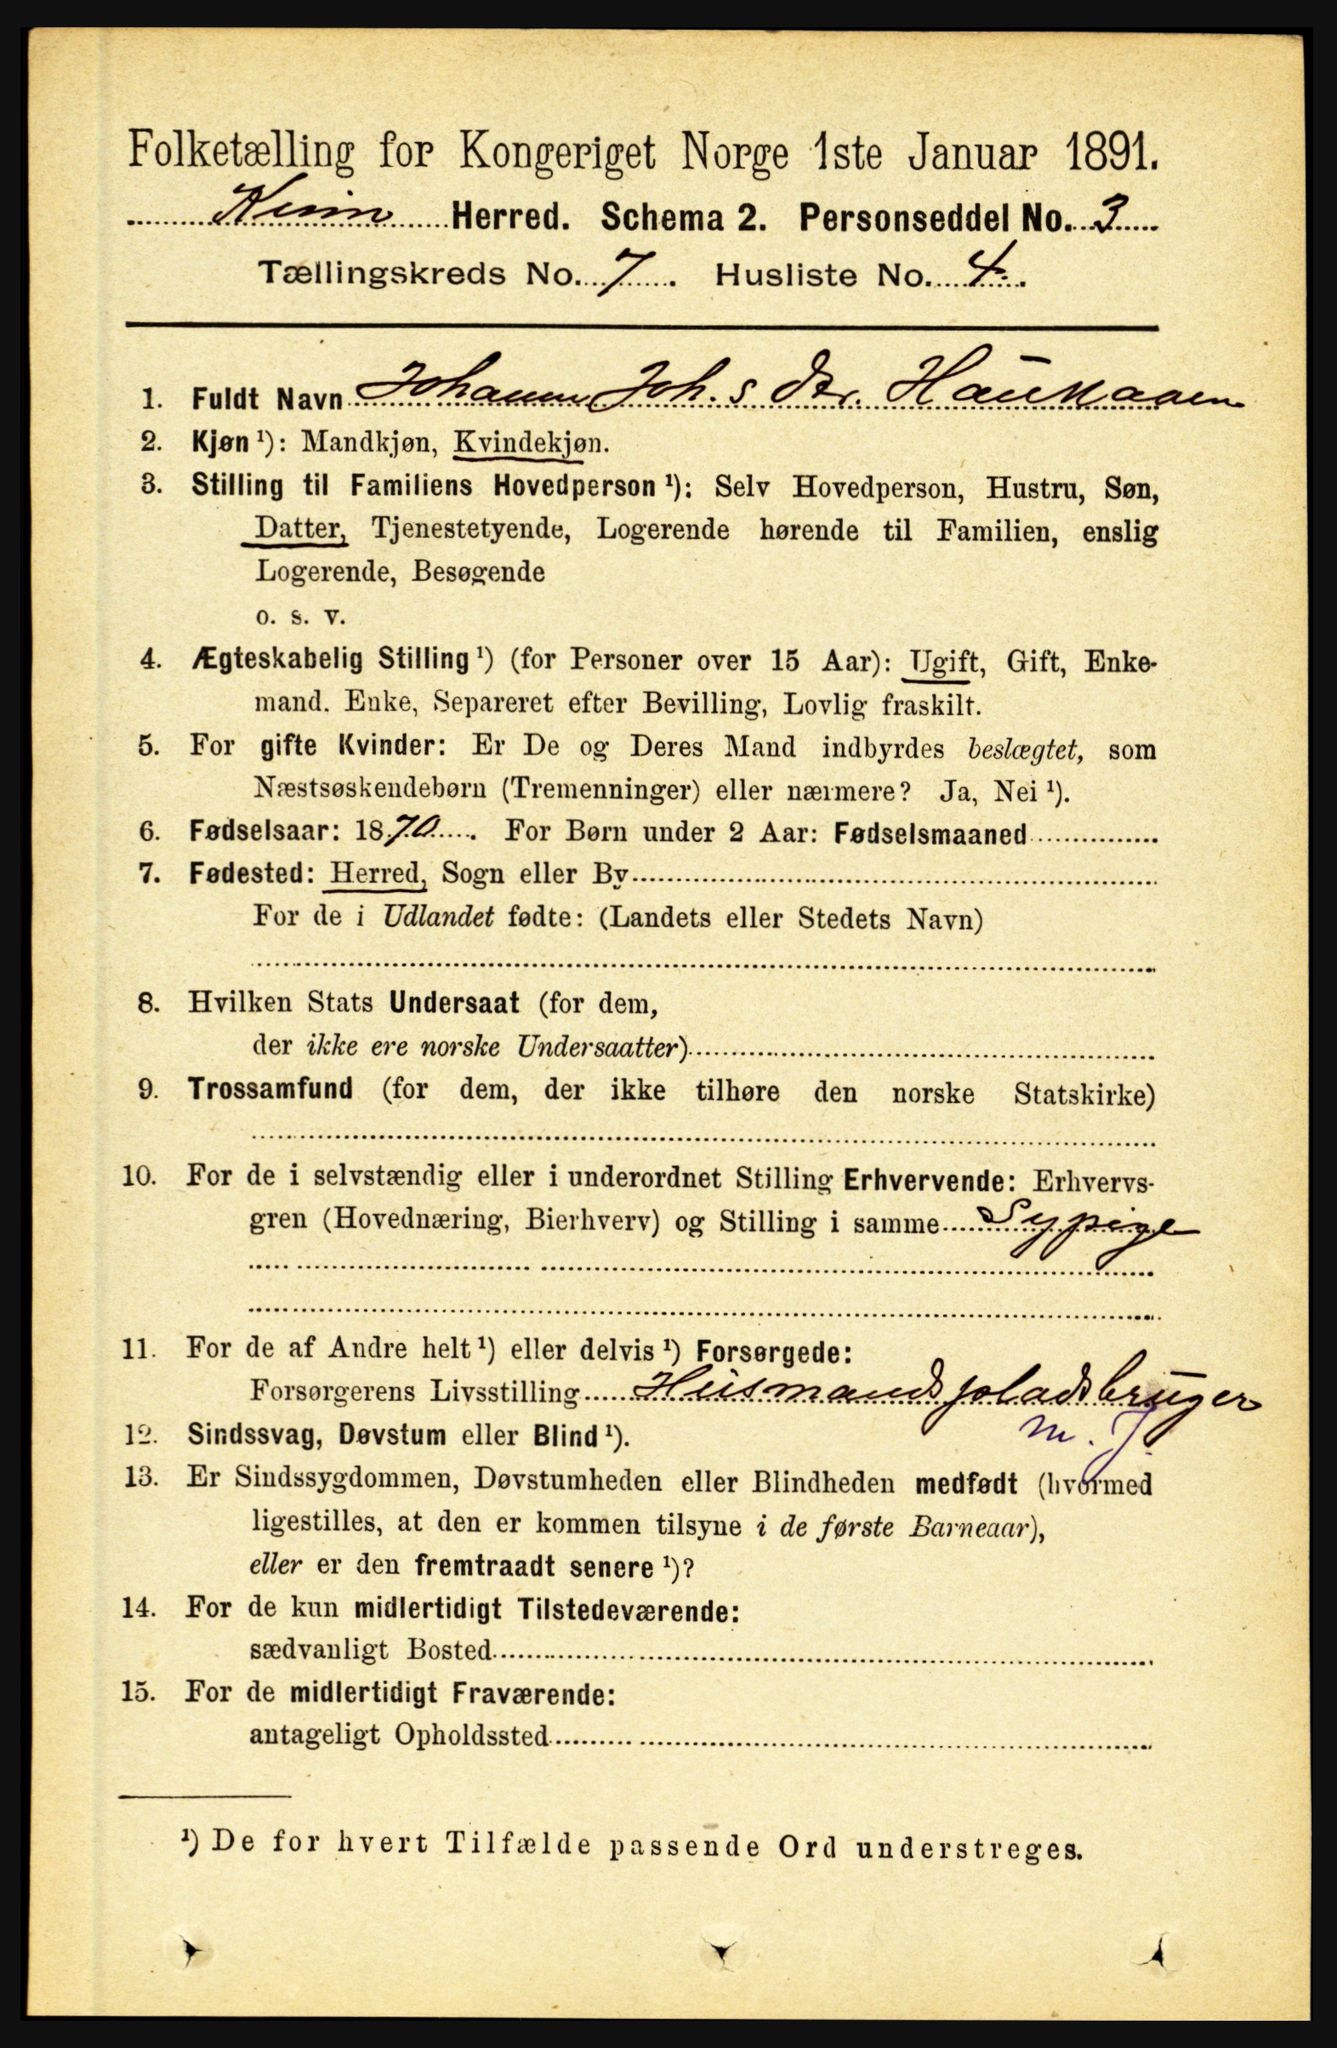 Folketælling for Kongeriget Norge 1ste Januar 1891.
Kinn Herred. Schema 2. Personseddel No. 3
Tællingskreds No. 7. Husliste No. 4.
1. Fuldt Navn Johanne Joh.s Dtr.
2. Kjøn ¹): Mandkjøn, Kvindekjøn.
3. Stilling til Familiens Hovedperson ¹): Selv Hovedperson, Hustru, Søn,
Datter, Tjenestetyende, Logerende hørende til Familien, enslig
Logerende, Besøgende
o. s. v.
4. Ægteskabelig Stilling ¹) (for Personer over 15 Aar): Ugift, Gift, Enke-
mand. Enke, Separeret efter Bevilling, Lovlig fraskilt.
5. For gifte Kvinder: Er De og Deres Mand indbyrdes beslægtet, som
Næstsøskendebørn (Tremenninger) eller nærmere? Ja, Nei ¹).
6. Fødselsaar: 1870. For Børn under 2 Aar: Fødselsmaaned
7. Fødested: Herred, Sogn eller By
For de i Udlandet fødte: (Landets eller Stedets Navn)
8. Hvilken Stats Undersaat (for dem,
der ikke ere norske Undersaatter)
9. Trossamfund (for dem, der ikke tilhøre den norske Statskirke)
10. For de i selvstændig eller i underordnet Stilling Erhvervende: Erhvervs-
gren (Hovednæring, Bierhverv) og Stilling i samme Sypige
11. For de af Andre helt ¹) eller delvis ¹) Forsørgede:
Forsørgerens Livsstilling Husmandspladsbruger
m. J.
12. Sindssvag, Døvstum eller Blind ¹).
13. Er Sindssygdommen, Døvstumheden eller Blindheden medfødt (hvormed
ligestilles, at den er kommen tilsyne i de første Barneaar),
eller er den fremtraadt senere ¹)?
14. For de kun midlertidigt Tilstedeværende:
sædvanligt Bosted
15. For de midlertidigt Fraværende:
antageligt Opholdssted
¹) De for hvert Tilfælde passende Ord understreges.